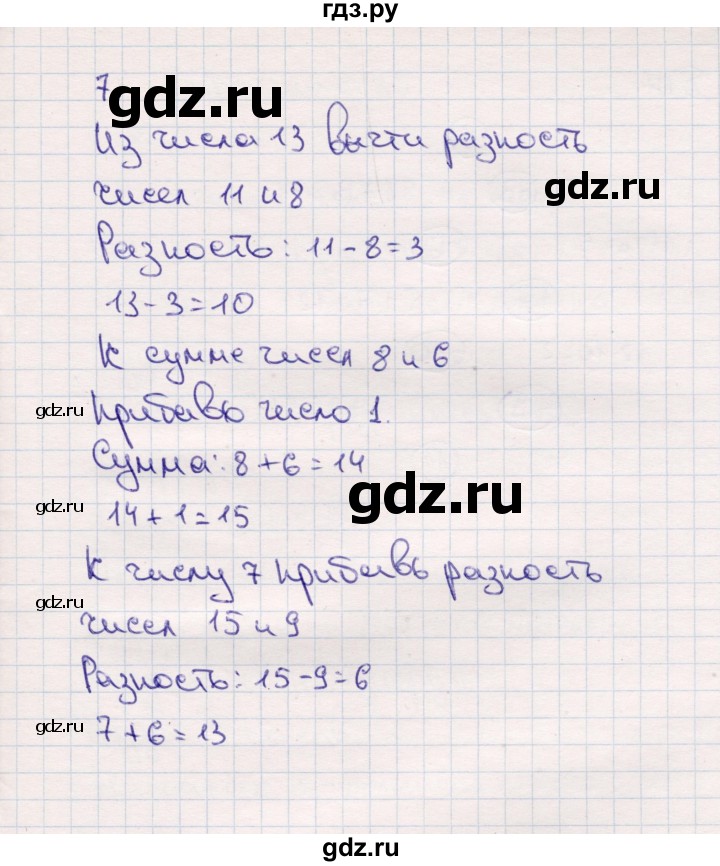 гдз.ру
7
gdz.ru
Из числа 13 вычти разность
чисел 11 и 8
gdz.ru
Разность: 11 - 8 = 3
13 - 3 = 10
К сумме чисел 8 и 6
gdz.ru
прибавь число 1.
Сумма: 8 + 6 = 14
gdz.ru
gdz.ru
14 + 1 = 15
К числу 7 прибавь разность
gdz.ru
чисел 15 и 9
Разность: 15 - 9 = 6
gdz.ru
7 + 6 = 13
gdz.ru